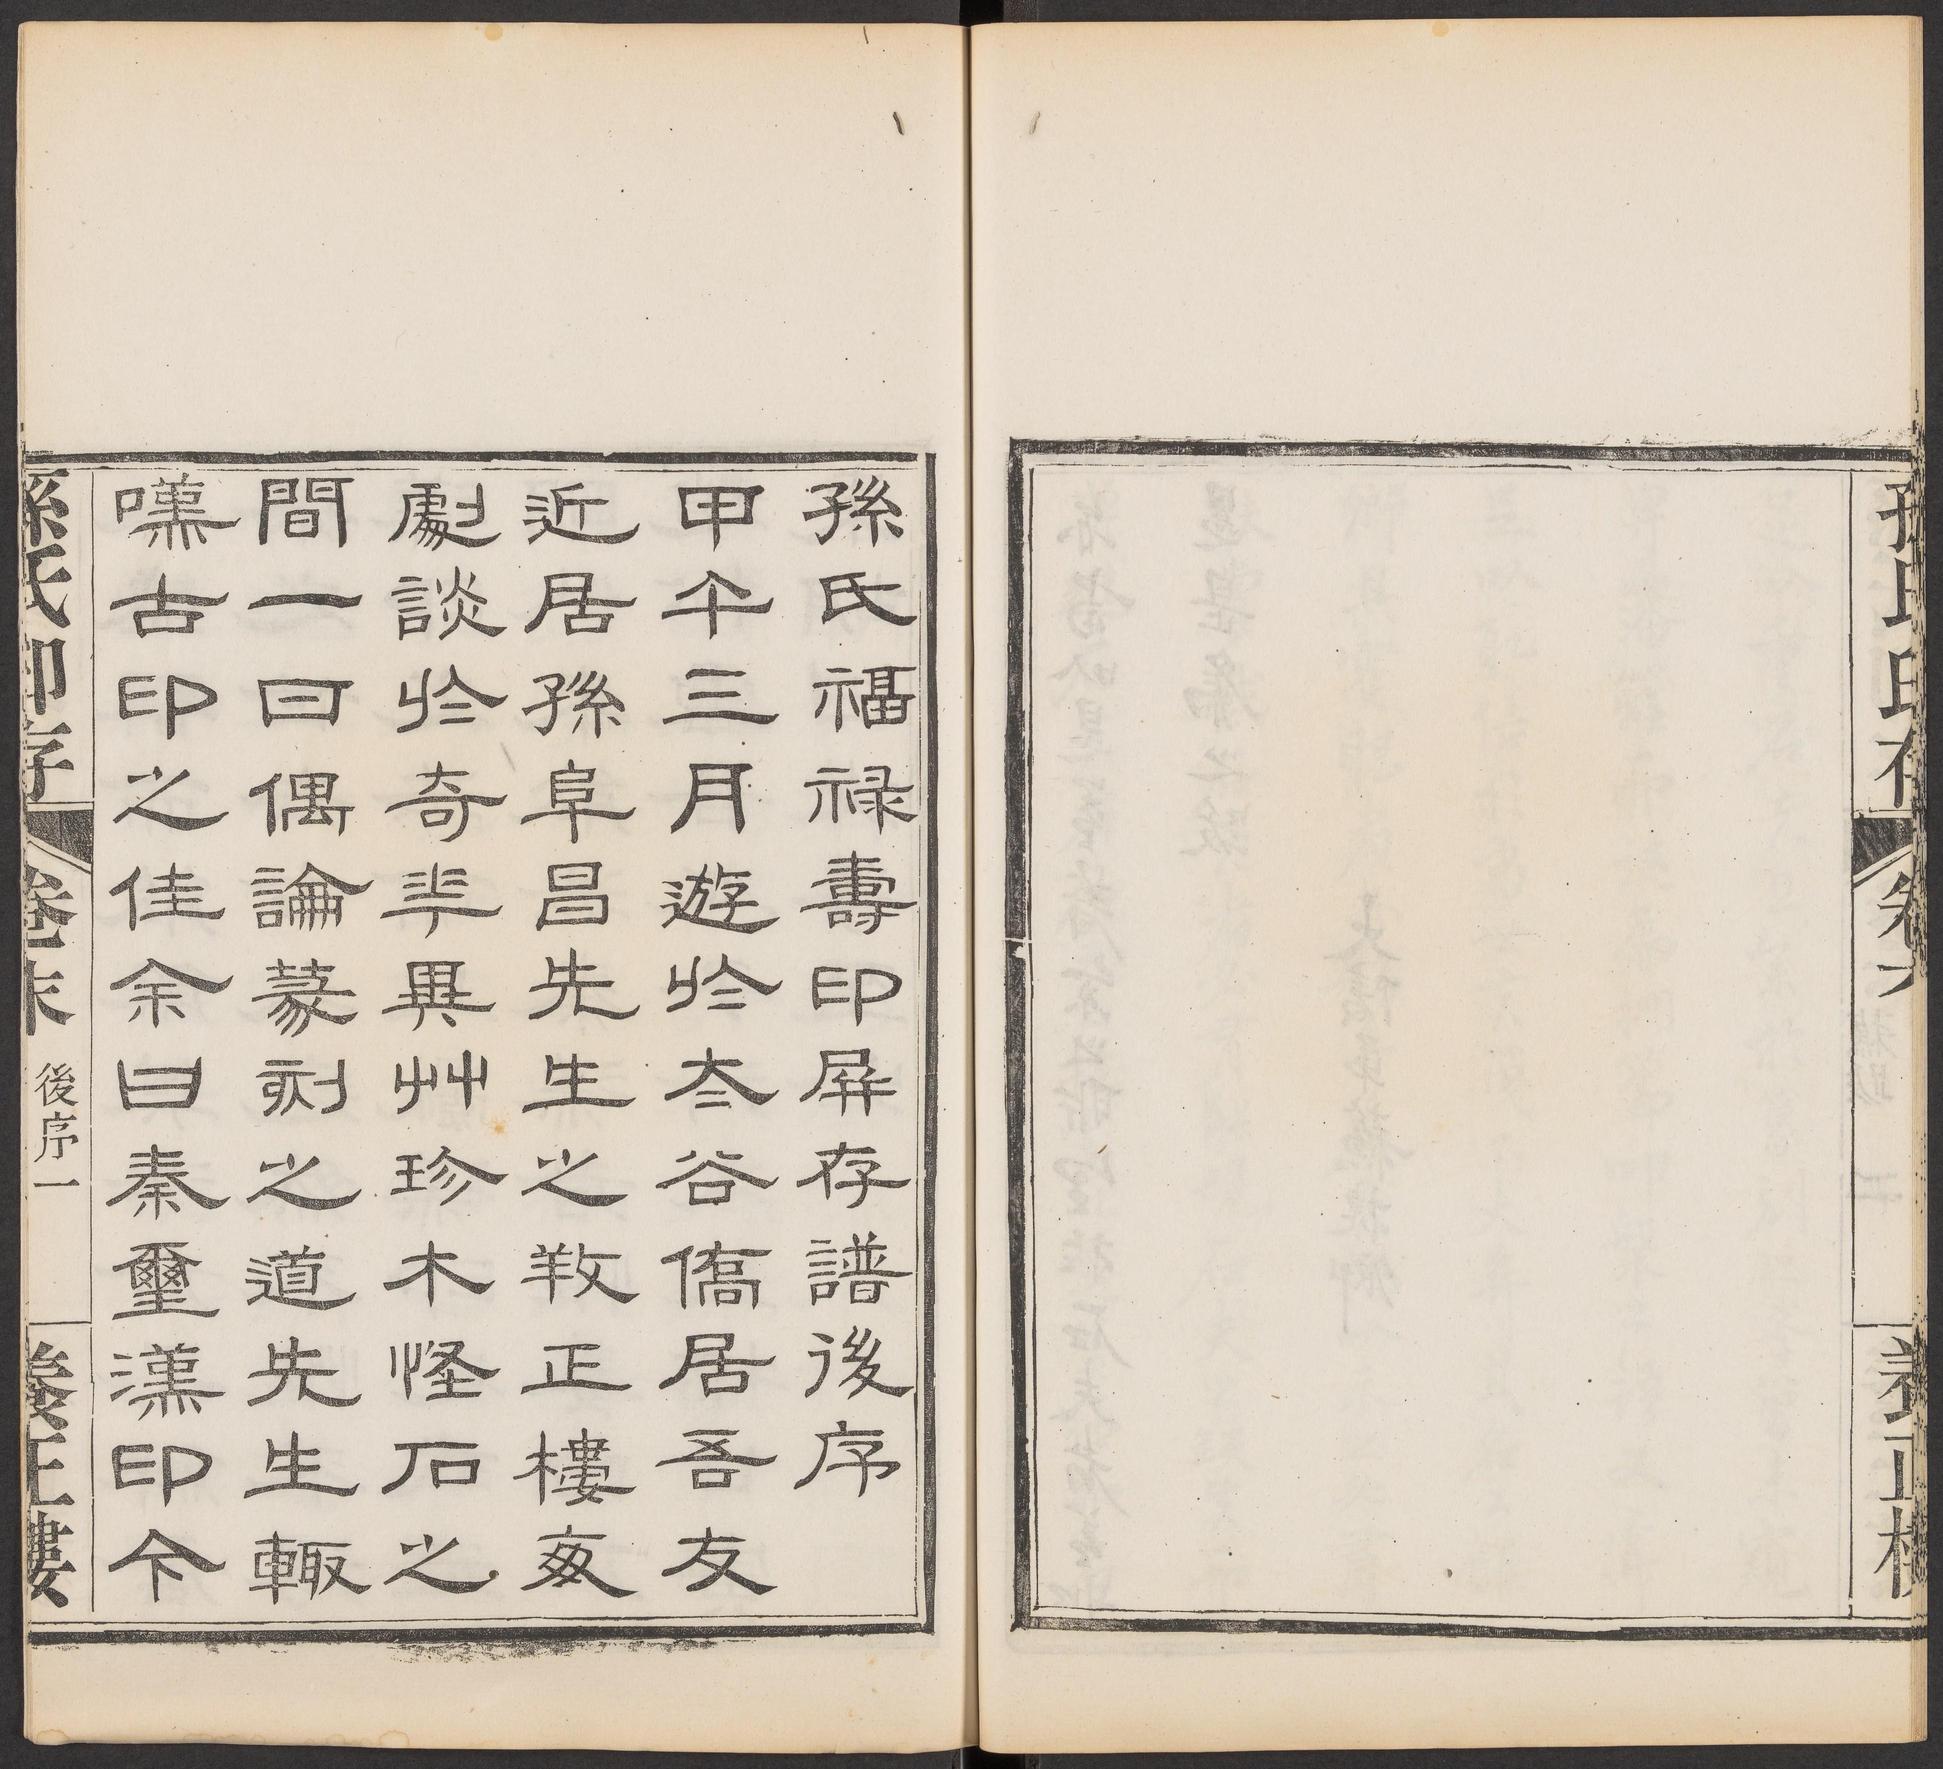 孫氏印存 卷六 養正樓
孫氏福禄壽印屏存譜後序
甲午三月遊於太谷僑居吾友
近居孫阜昌先生之𢼝正樓每
劇談於奇華異艸珍木怪石之
間一日偶論篆刻之道先生輙
嘆古印之佳余曰秦璽漢印今
孫氏印存 卷末 後序一 養正樓